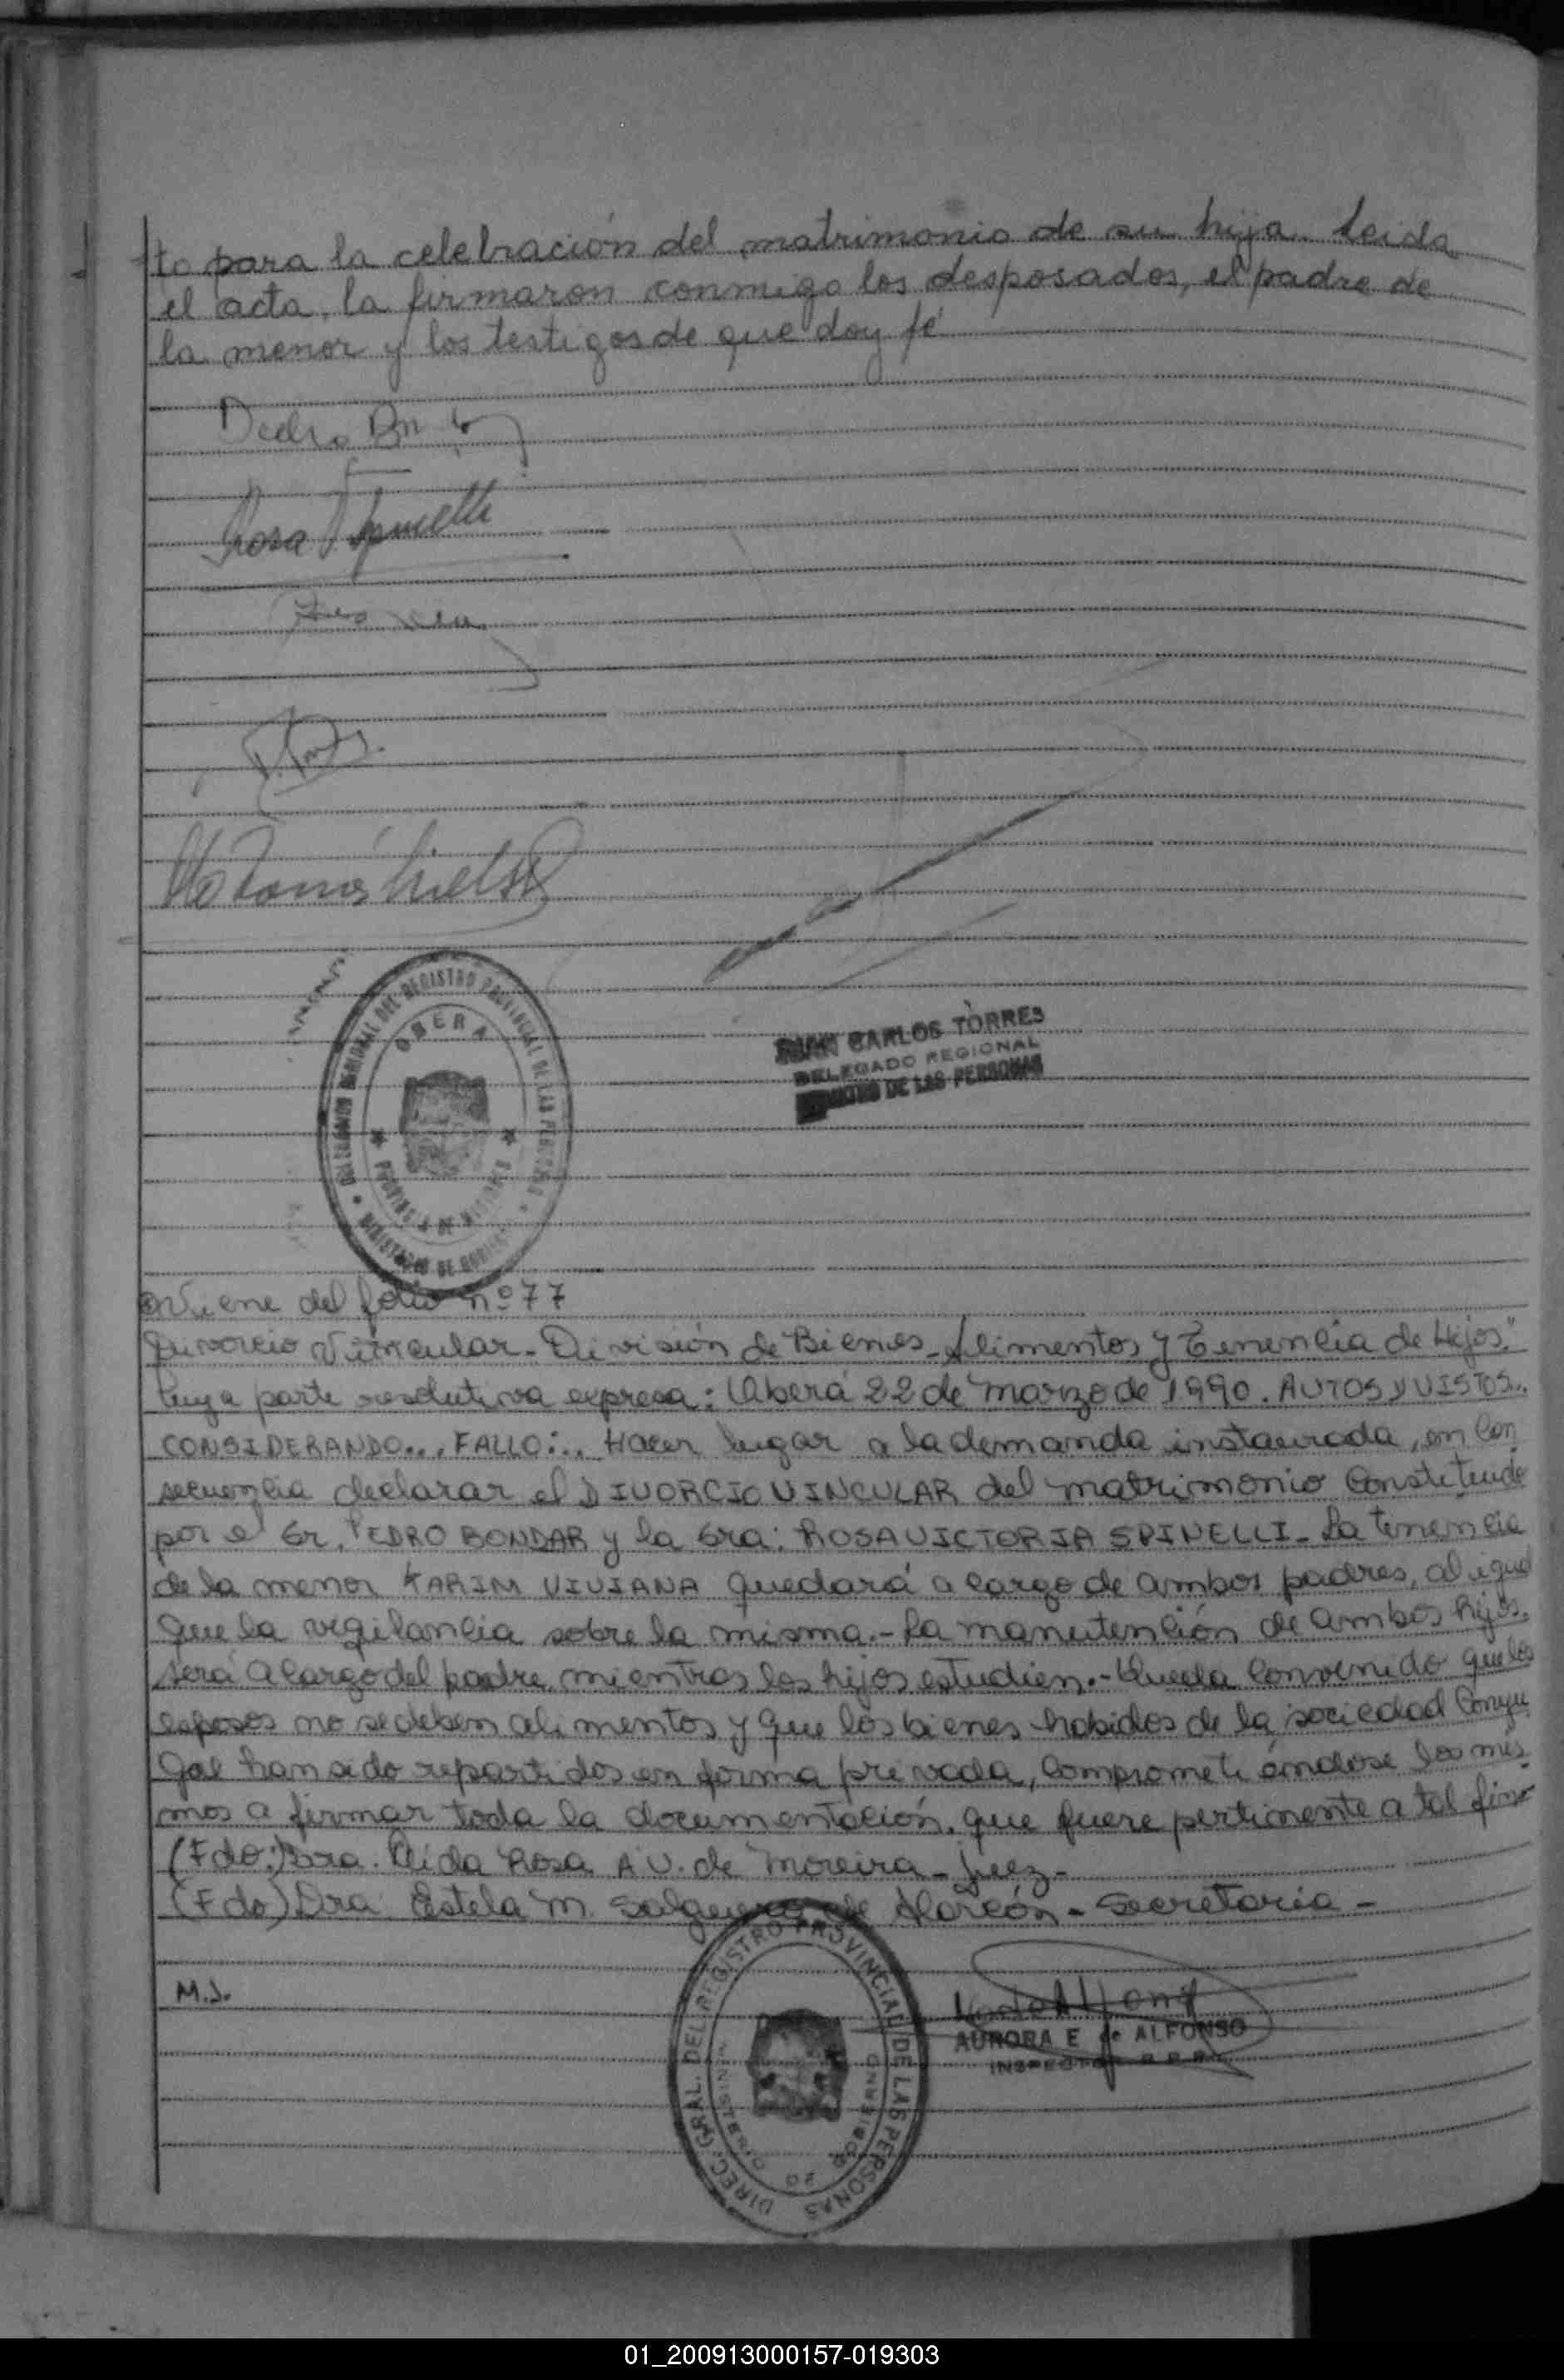 to para la celebración del matrimonio de su hija. Leida
el acta, la firmaron conmigo los desposados, el padre de
la menor y los testigos de que doy fé
Pedro
Rosa Spinelli
DELEGACION REGIONAL DEL REGISTRO PROVINCIAL DE LAS PERSONAS
OBERA
PROVINCIA DE MISIONES
MINISTERIO DE GOBIERNO
JUAN CARLOS TORRES
DELEGADO REGIONAL
REGISTRO DE LAS PERSONAS
Viene del folio nº 77
Divorcio Vincular - División de Bienes - Alimentos y Tenencia de Hijos"
Cuya parte resolutiva expresa: Oberá 22 de Marzo de 1990. AUTOS Y VISTOS..
CONSIDERANDO... FALLO:.. Hacer lugar a la demanda instaurada, en Con
secuencia declarar el DIVORCIO VINCULAR del matrimonio Constituido
por el Sr. PEDRO BONDAR y la Sra: ROSA VICTORIA SPINELLI - La tenencia
de la menor KARIM VIVIANA quedará a cargo de ambos padres, al igual
que la vigilancia sobre la misma.- La manutención de ambos hijos,
será a cargo del padre mientras los hijos estudien.- Queda Convenido que los
esposos no se deben alimentos y que los bienes habidos de la sociedad Conyu
gal han sido repartidos en forma privada, Comprometiéndose los mis
mos a firmar toda la documentación, que fuere pertinente a tal fin
(Fdo:) Dra. Aida Rosa A V. de Moreira - Juez -
(Fdo) Dra. Estela M. Salguero de Alarcón - Secretaria -
M.J.
DIREC. GRAL. DEL REGISTRO PROVINCIAL DE LAS PERSONAS
MINISTERIO DE GOBIERNO
AURORA E de ALFONSO
INSPECTOR R.P.P.
01_200913000157-019303